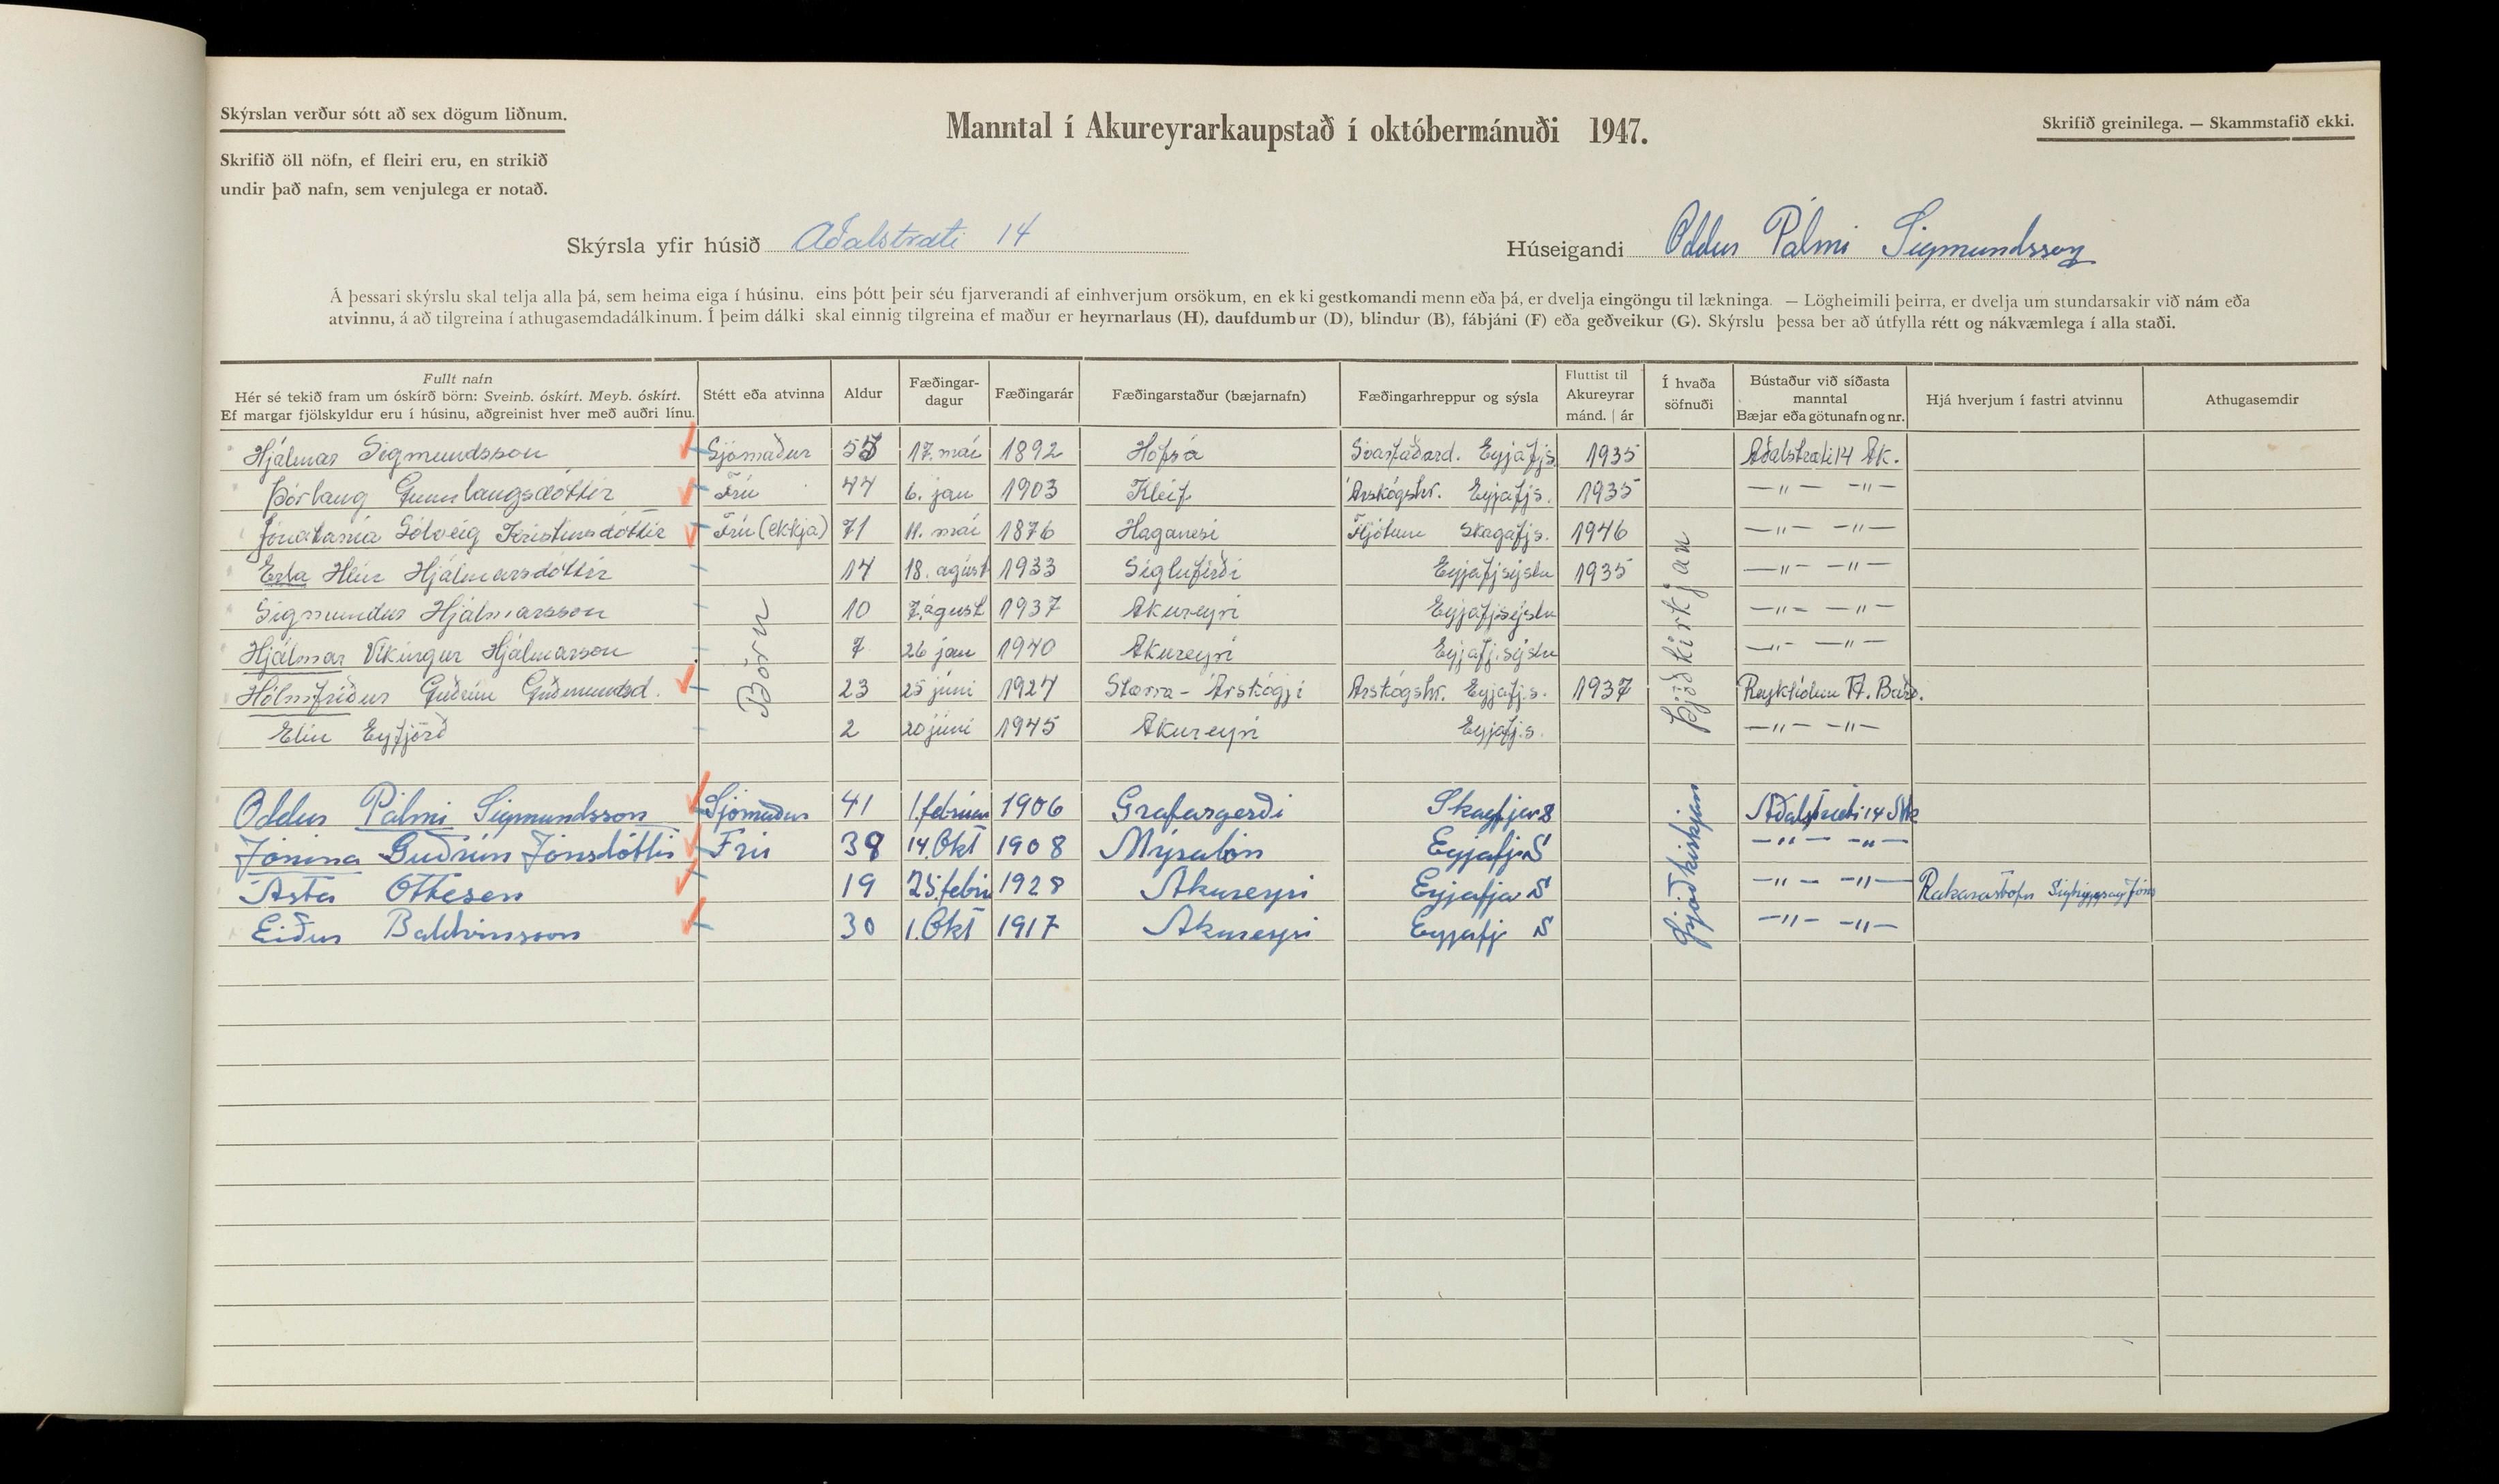 Skýrslan verður sótt að sex dögum liðnum.
Manntal í Akureyrarkaupstað í októbermánuði 1947.
Skrifið greinilega. — Skammstafið ekki.
Skrifið öll nöfn, ef fleiri eru, en strikið
undir það nafn, sem venjulega er notað.
Skýrsla yfir húsið Aðalstræti 14
Húseigandi Oddur Pálmi Sigmundsson
Á þessari skýrslu skal telja alla þá, sem heima eiga í húsinu, eins þótt þeir séu fjarverandi af einhverjum orsökum, en ekki gestkomandi menn eða þá, er dvelja eingöngu til lækninga. — Lögheimili þeirra, er dvelja um stundarsakir við nám eða
atvinnu, á að tilgreina í athugasemdadálkinum. Í þeim dálki skal einnig tilgreina ef maður er heyrnarlaus (H), daufdumbur (D), blindur (B), fábjáni (F) eða geðveikur (G). Skýrslu þessa ber að útfylla rétt og nákvæmlega í alla staði.
Fullt nafn
Hér sé tekið fram um óskírð börn: Sveinb. óskírt. Meyb. óskírt.
Ef margar fjölskyldur eru í húsinu, aðgreinist hver með auðri línu.
Stétt eða atvinna
Aldur
Fæðingar-
dagur
Fæðingarár
Fæðingarstaður (bæjarnafn)
Fæðingarhreppur og sýsla
Fluttist til
Akureyrar
mánd. | ár
Í hvaða
söfnuði
Bústaður við síðasta
manntal
Bæjar eða götunafn og nr.
Hjá hverjum í fastri atvinnu
Athugasemdir
Hjálmar Sigmundsson Sjómaður 55 17. maí 1892 Hofsá Svarfaðard. Eyjafjs. 1935 Aðalstræti 14 Ak.
Þórlaug Gunnlaugsdóttir Frú 44 6. jan 1903 Kleif Árskógshr. Eyjafjs. 1935 —"— —"—
Jónatanía Sólveig Kristinsdóttir Frú (ekkja) 71 11. maí 1876 Haganesi Fljótum Skagafjs. 1946 —"— —"—
Erla Hlín Hjálmarsdóttir 14 18. ágúst 1933 Siglufirði Eyjafjsýslu 1935 —"— —"—
Sigmundur Hjálmarsson 10 7. ágúst 1937 Akureyri Eyjafjsýslu —"— —"—
Hjálmar Víkingur Hjálmarson 7 26 jan 1940 Akureyri Eyjafj.sýslu —"— —"—
Hólmfríður Guðrún Guðmundsd. 23 25 júní 1924 Stærra-Árskógi Árskógshr. Eyjafj.s. 1937
Elín Eyfjörð 2 20 júní 1945 Akureyri Eyjafj.s. —"— —"—
Börn
Þjóðkirkjan
Oddur Pálmi Sigmundsson Sjómaður 41 1. febrúar 1906 Grafargerði Skagfjars Aðalstræti 14 Ak
Jónína Guðrún Jónsdóttir Frú 39 14. Okt 1908 Mýralón Eyjafj S —"— —"—
Ásta Ottesen 19 25. febrú 1928 Akureyri Eyjafja S —"— —"— Rakarastofu
Eiður Baldvinsson 30 1. Okt 1917 Akureyri Eyjafj S —"— —"—
Þjóðkirkjan